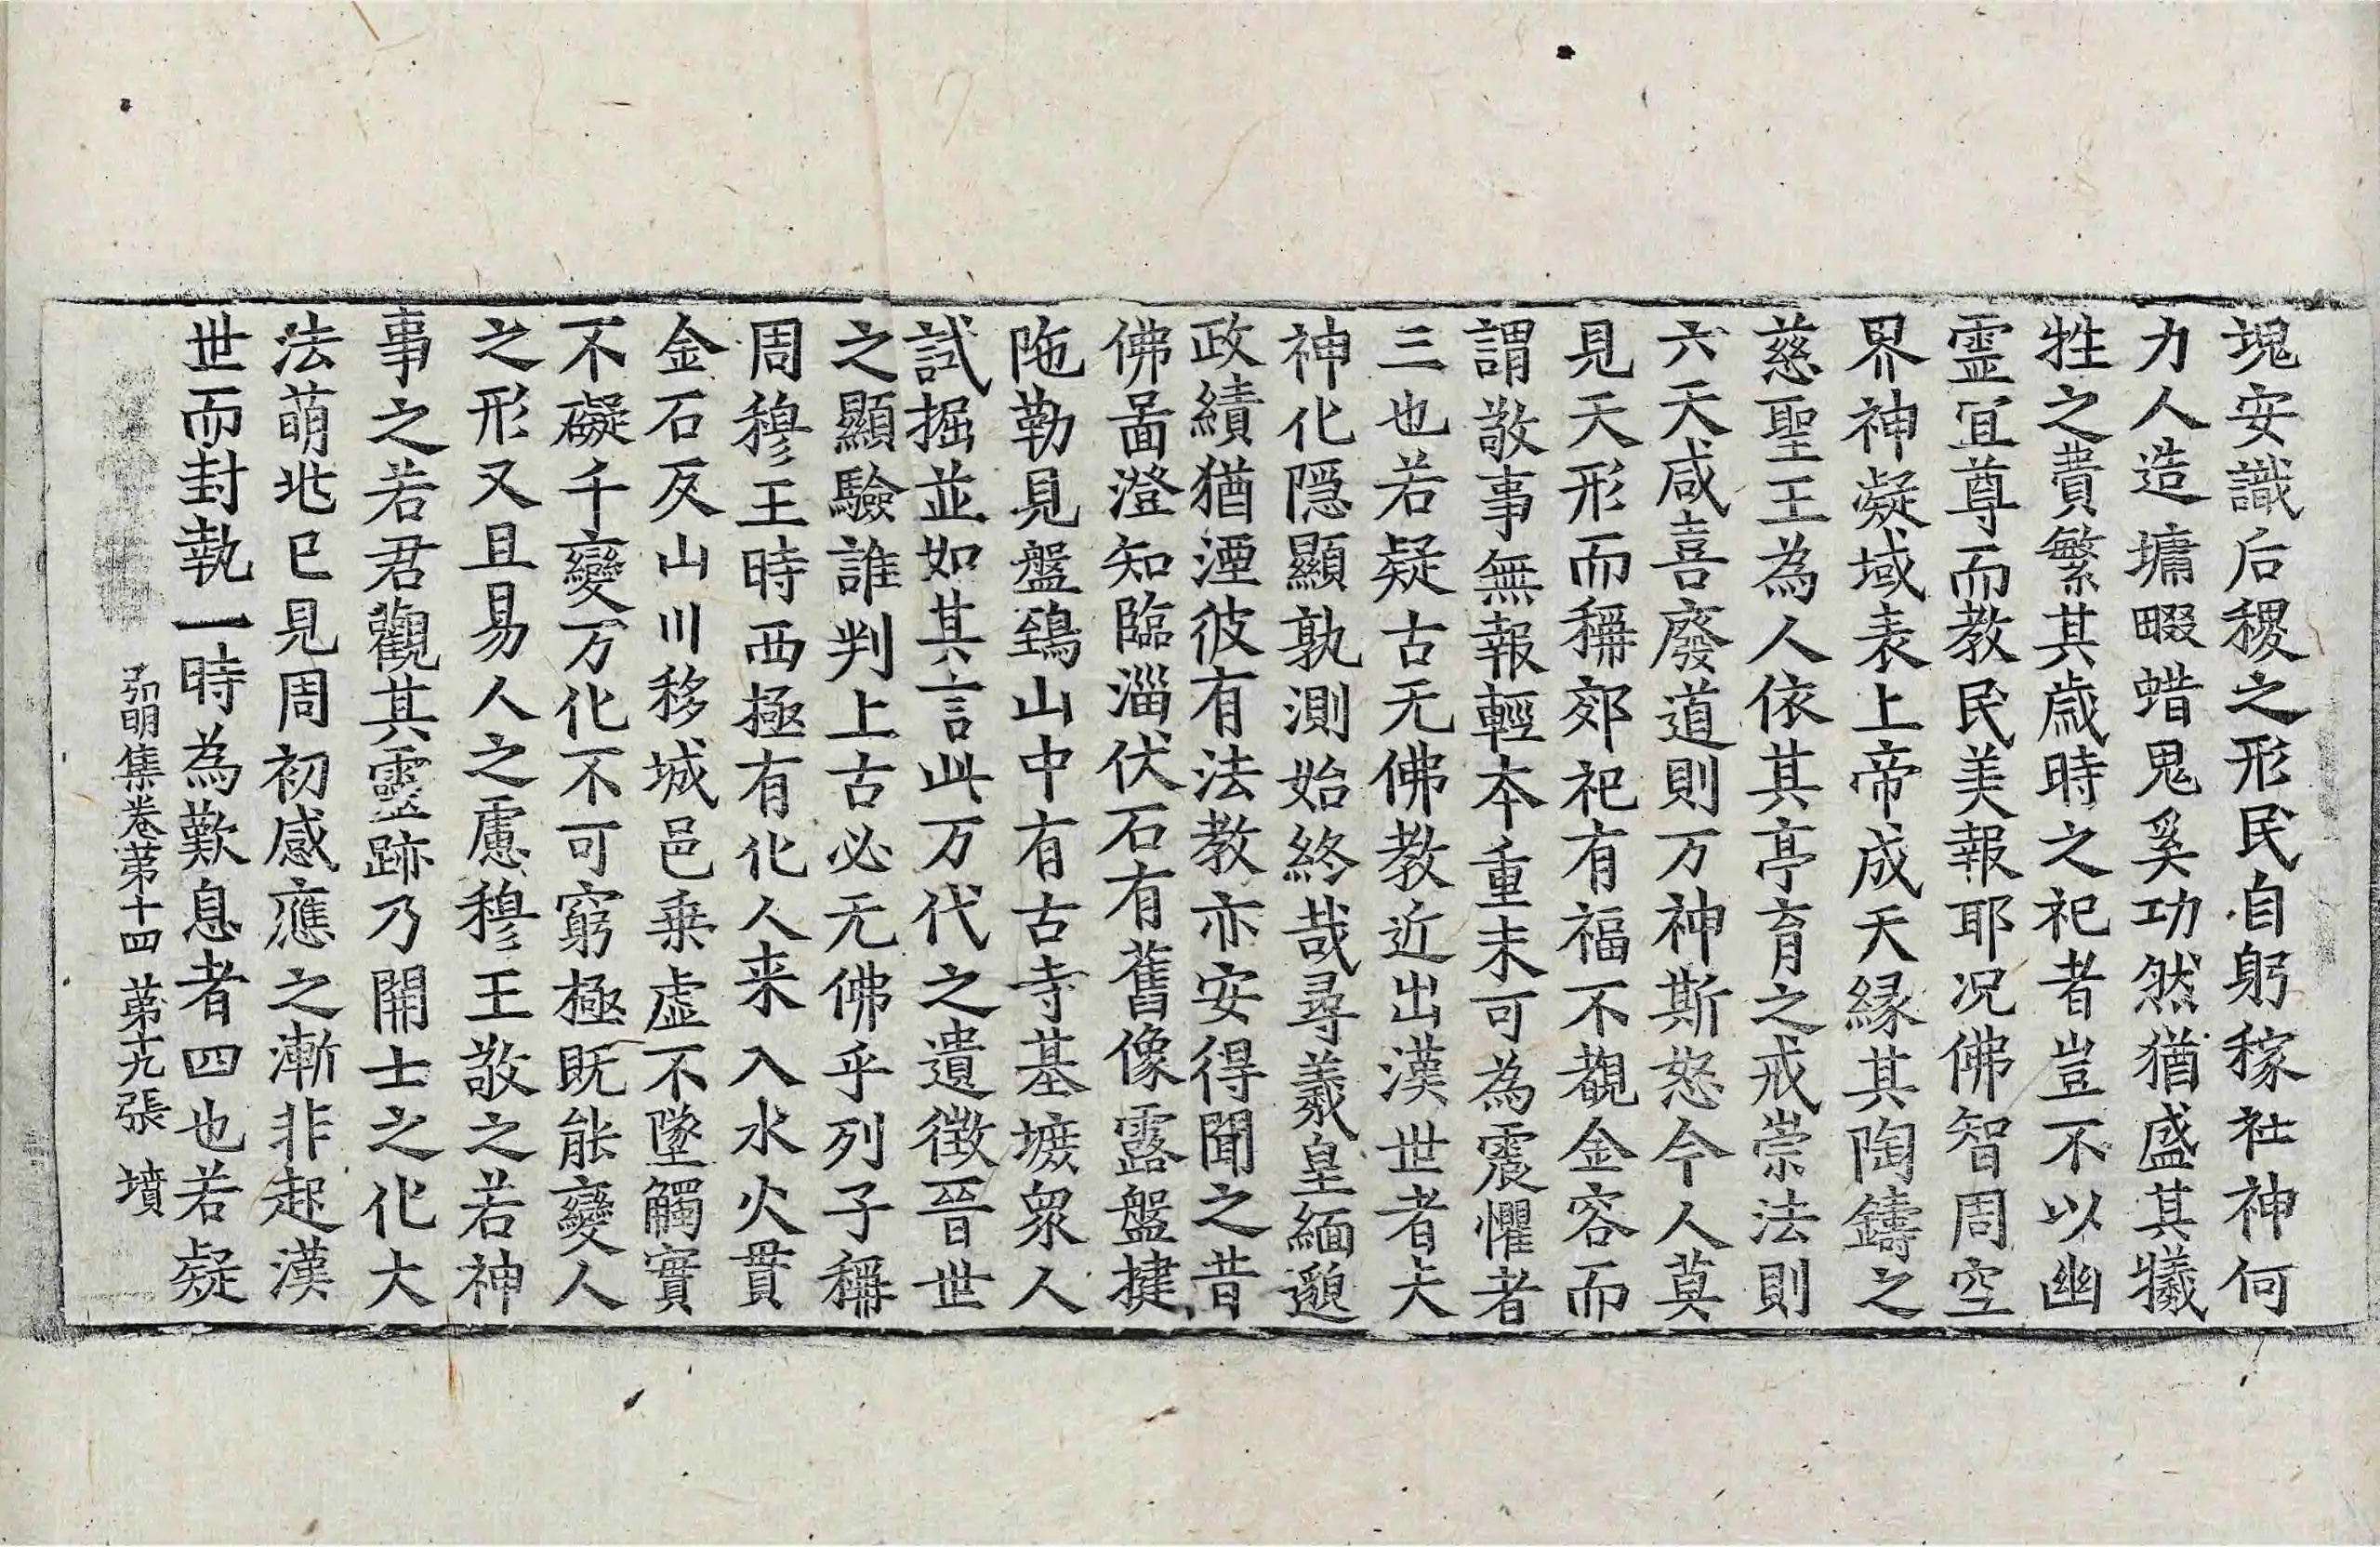 塊安識后稷之形民自躬稼社神何
力人造墉畷蜡鬼奚功然猶盛其犧
牲之費繁其歲時之祀者豈不以幽
霊冝尊而教民美報耶况佛智周空
界神凝域表上帝成天縁其陶鑄之
慈聖王為人依其亭育之戒崇法則
六天咸喜廢道則万神斯怒今人莫
見天形而稱郊祀有福不覩金容而
謂敬事無報輕本重末可為震懼者
三也若疑古无佛教近出漢世者夫
神化隠顯孰測始終哉尋羲皇緬邈
政績猶湮彼有法教亦安得聞之昔
佛啚澄知臨淄伏石有舊像露盤揵
陁勒見盤鵄山中有古寺基墌衆人
試掘並如其言此万代之遺徵晉世
之顯驗誰判上古必无佛乎列子稱
周穆王時西極有化人来入水火貫
金石反山川移城邑乗虚不墜觸實
不礙千變万化不可窮極既能變人
之形又且易人之慮穆王敬之若神
事之若君觀其靈跡乃開士之化大
法萌兆已見周初感應之漸非起漢
世而封執一時為歎息者四也若疑
弘明集卷苐十四 苐十九張 墳